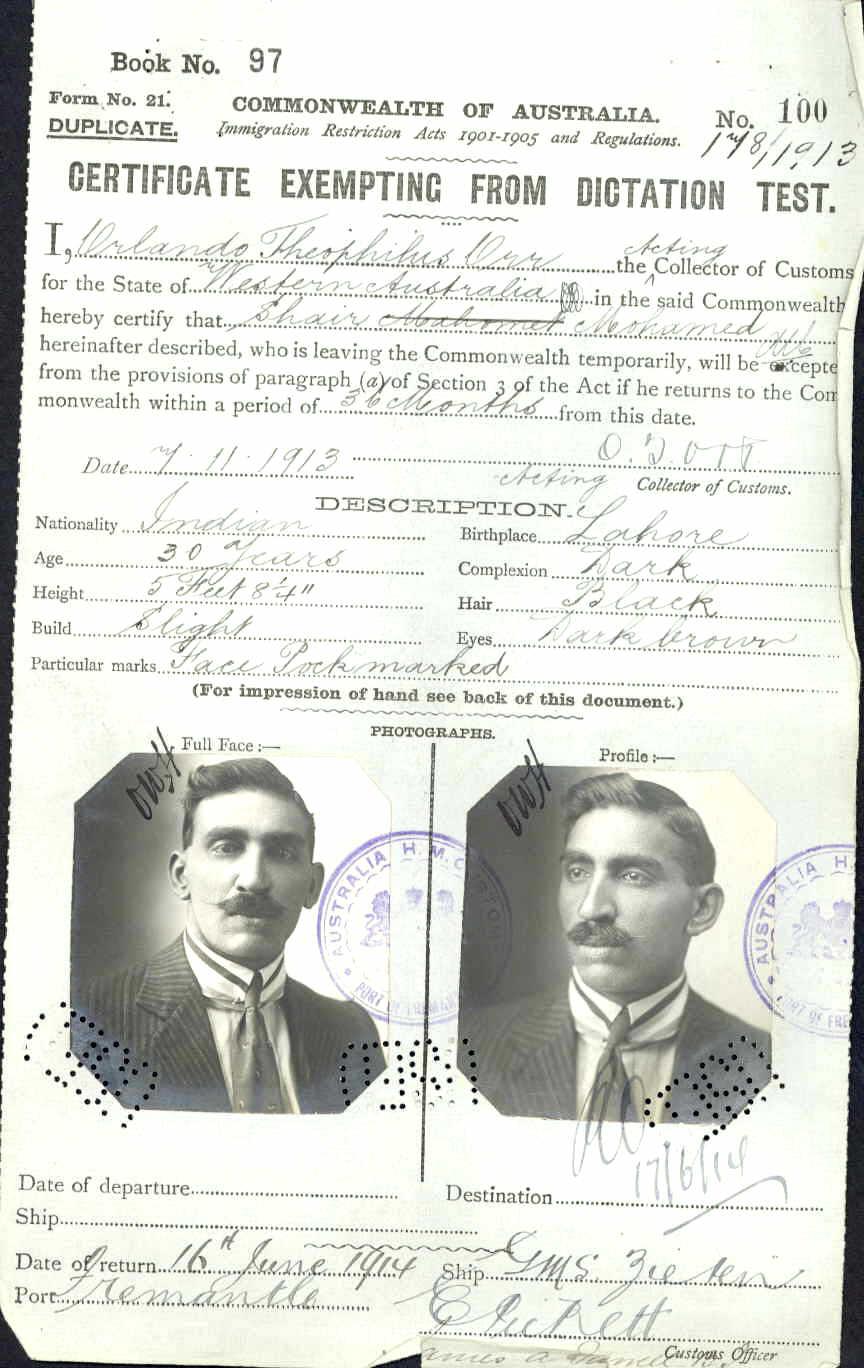 Book No. 97
Form No. 21.
COMMONWEALTH OF AUSTRALIA.
No. 100
DUPLICATE.
Immigration Restriction Acts 1901-1905 and Regulations.
178/1913
CERTIFICATE EXEMPTING FROM DICTATION TEST.
I, Orlando Theophilus Orr the Acting Collector of Customs
for the State of Western Australia in the said Commonwealth
hereby certify that Shair Mahomet Mohamed
hereinafter described, who is leaving the Commonwealth temporarily, will be excepte
from the provisions of paragraph (a) of Section 3 of the Act if he returns to the Com
monwealth within a period of 36 Months from this date.
Date 7.11.1913
O. T. Orr
Acting Collector of Customs.
DESCRIPTION.
Nationality Indian
Birthplace Lahore
Age 30 Years
Complexion Dark
Height 5 Feet 8¼"
Hair Black
Build Slight
Eyes Dark brown
Particular marks Face Pock marked
(For impression of hand see back of this document.)
PHOTOGRAPHS.
Full Face :—
Profile :—
OWH
OWH
AUSTRALIA H.M. CUSTOM
PORT OF FREMAN
AUSTRALIA H.
PORT OF FRE
17/6/14
Date of departure
Destination
Ship
Date of return 16th June 1914
Ship GMS. Zieten
Port Fremantle
Customs Officer